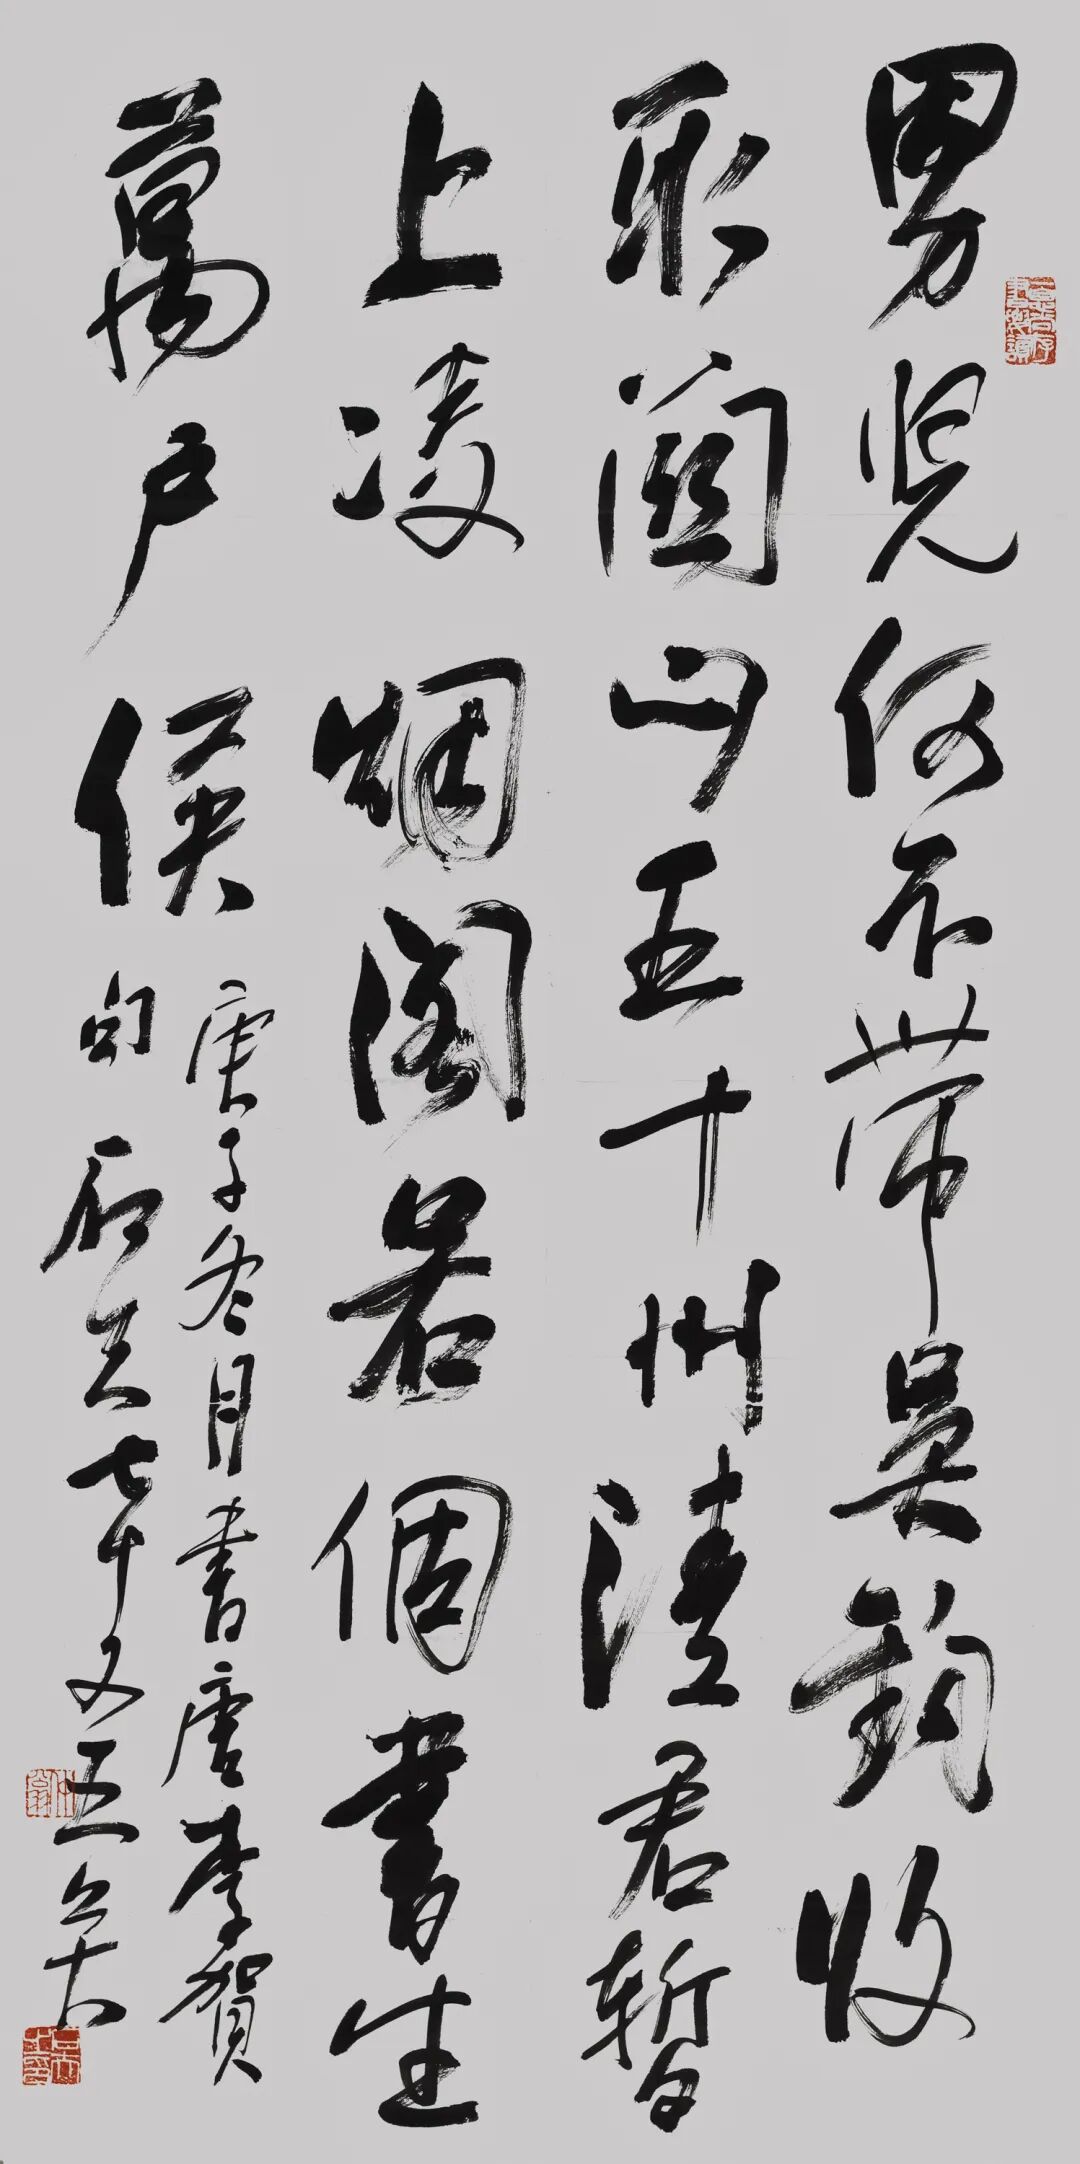 男兒何不帶吳鈎收
取關山五十州請君暫
上凌烟閣若個書生
萬戶侯
庚子冬月書唐李賀
句 七十又五